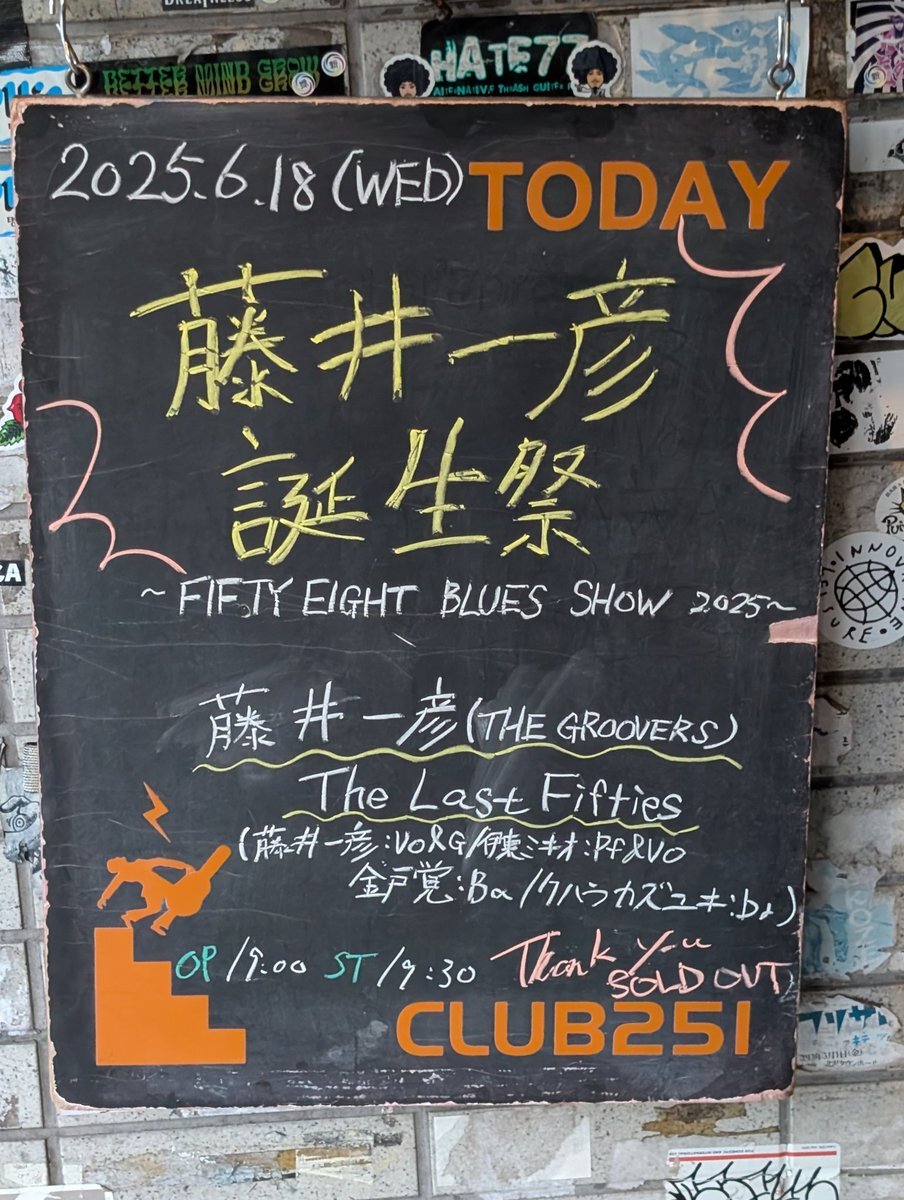 BETTER MIND GROW
HATE77
ALTERNATIVE THRASH GUITER
2025.6.18(WED) TODAY
藤井一彦
誕生祭
~FIFTY EIGHT BLUES SHOW 2025~
藤井一彦(THE GROOVERS)
The Last Fifties
(藤井一彦:Vo&G/伊東ミキオ:Pf&Vo
金戸覚:Ba/クハラカズユキ:Dr)
OP 19:00 ST 19:30 Thank You
SOLD OUT
CLUB251